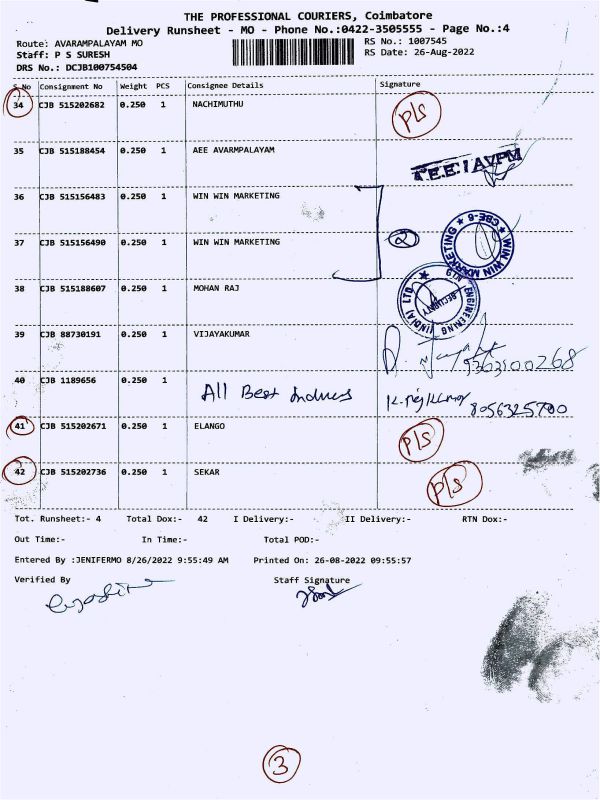 THE PROFESSIONAL COURIERS, Coimbatore
Delivery Runsheet - MO - Phone No.:0422-3505555 - Page No.:4
Route: AVARAMPALAYAM MO RS No.: 1007545
Staff: P S SURESH RS Date: 26-Aug-2022
DRS No.: DCJB100754504
S.No Consignment No Weight PCS Consignee Details Signature
34 CJB 515202682 0.250 1 NACHIMUTHU Pls
35 CJB 515188454 0.250 1 AEE AVARMPALAYAM A.E.E / AVPM
36 CJB 515156483 0.250 1 WIN WIN MARKETING
37 CJB 515156490 0.250 1 WIN WIN MARKETING 2 WIN WIN MARKETING ★ CBE-6 ★
38 CJB 515188607 0.250 1 MOHAN RAJ ENGINEERING (INDIA) LTD. SECURITY
39 CJB 88730191 0.250 1 VIJAYAKUMAR 9363100268
40 CJB 1189656 0.250 1 All Best 8056325700
41 CJB 515202671 0.250 1 ELANGO Pls
42 CJB 515202736 0.250 1 SEKAR Pls
Tot. Runsheet:- 4 Total Dox:- 42 I Delivery:- II Delivery:- RTN Dox:-
Out Time:- In Time:- Total POD:-
Entered By :JENIFERMO 8/26/2022 9:55:49 AM Printed On: 26-08-2022 09:55:57
Verified By Staff Signature
3